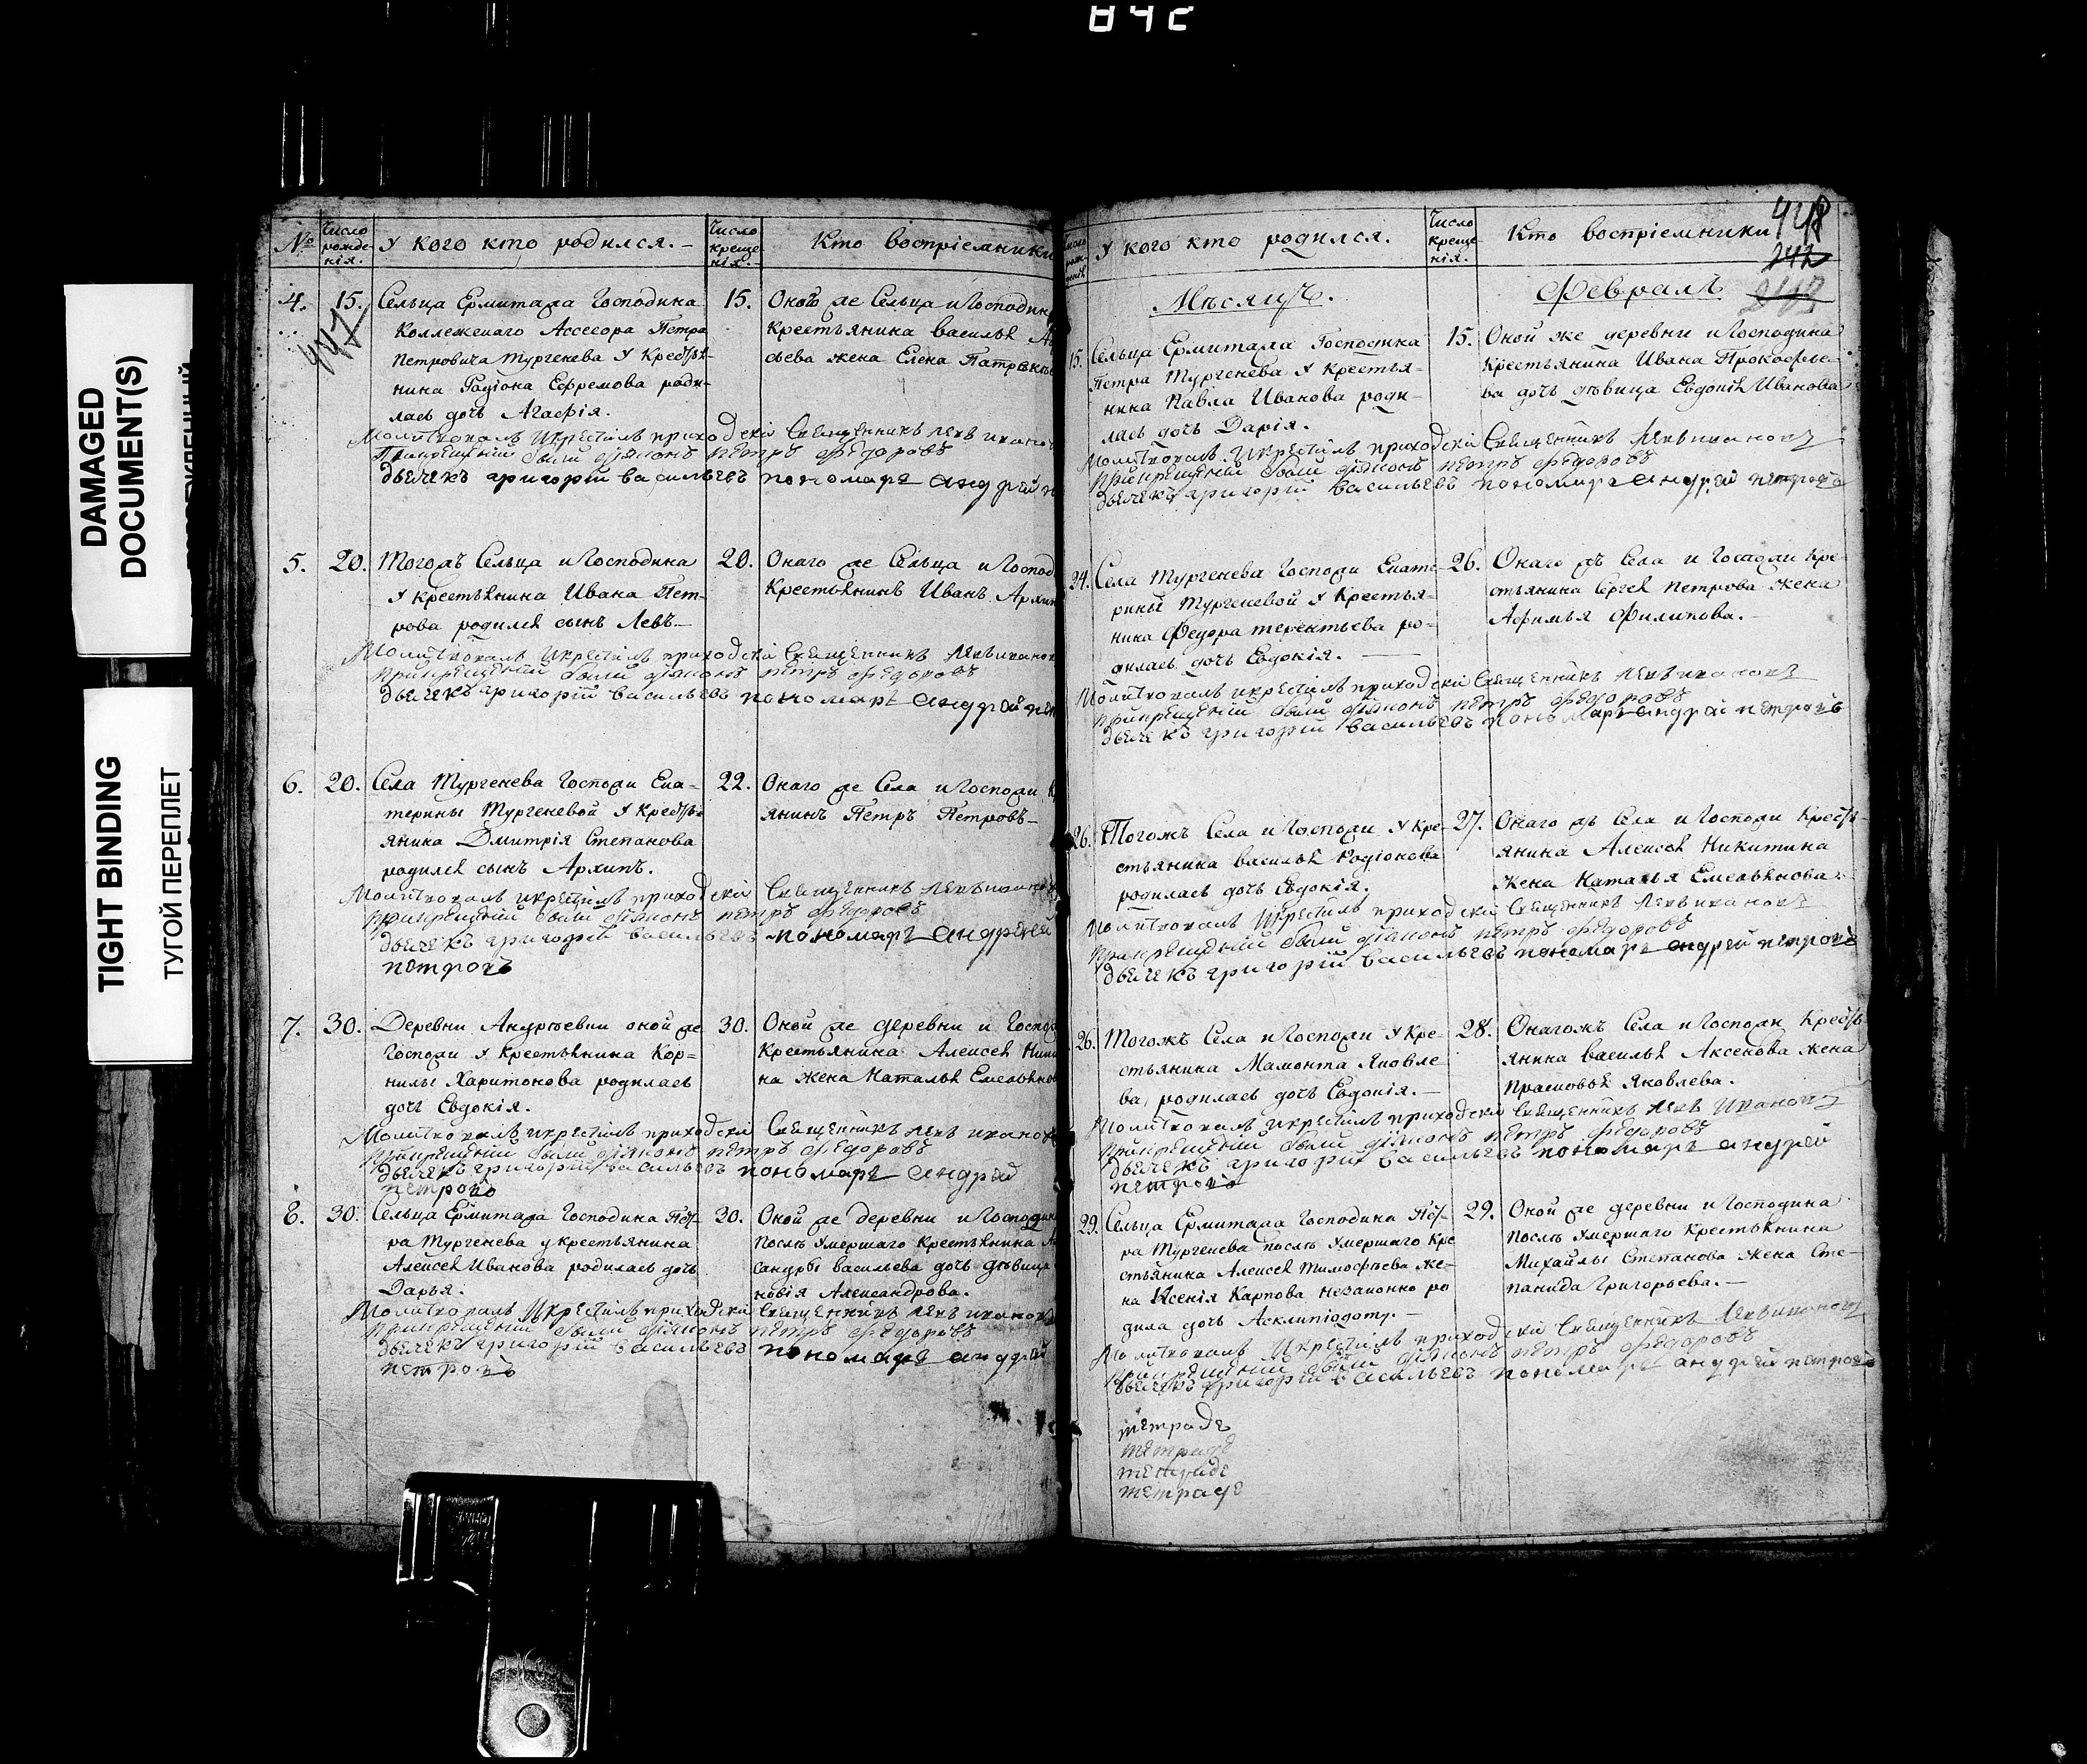 842
DAMAGED
DOCUMENT(S)
TIGHT BINDING
ТУГОЙ ПЕРЕПЛЕТ
№
Число рожденія.
У кого кто родился.
Число крещенія.
Кто воспріемники
4.
15.
447
Сельца Ермитажа Господина
Коллежскаго Ассесора Петра
Петровича Тургенева У Крестья-
нина Родіона Ефремова роди-
лась дочь Агафія.
15.
Оной же Сельца и Господина
Крестьянина Василья
сьева жена Елена Патрѣкѣ
Молитвовалъ Икрестилъ приходскій Священникъ Левъ иванов
Прикрещеніи были діаконъ петръ Федоровъ
дьячекъ григорій васильевъ пономарь андрей
5.
20.
Тогожъ Сельца и Господина
У крестьянина Ивана Пет-
рова родился сынъ Левъ.
20.
Онаго же Сельца и Господ
Крестьянинъ Иванъ Архип
Молитвовалъ Икрестилъ приходскій Священникъ Левъ иванов
Прикрещеніи были діаконъ петръ Федоровъ
дьячекъ григорій васильевъ пономарь андрей пет
6.
20.
Села Тургенева Госпожи Ека-
терины Тургеневой У Кресть-
янина Дмитрія Степанова
родился сынъ Архипъ.
22.
Онаго же Села и Госпожи К
янинъ Петръ Петровъ
Молитвовалъ икрестилъ приходскій Священникъ Левъ иванов
Прикрещеніи были діаконъ петръ Федоровъ
дьячекъ григорій васильевъ пономарь андрей
петровъ
7.
30.
Деревни Андрѣевки оной же
Госпожи У Крестьянина Кор-
нилы Харитонова родилась
дочь Евдокія.
30.
Оной же деревни и Госпо
Крестьянина Алексея Ники
на жена Наталья Емельянов
Молитвовалъ икрестилъ приходскій Священникъ Левъ иванов
Прикрещеніи были діаконъ петръ Федоровъ
дьячекъ григорій васильевъ пономарь андрей
петровъ
8.
30.
Сельца Ермитажа Господина Пет-
ра Тургенева у крестьянина
Алексея Иванова родилась дочь
Дарья.
30.
Оной же деревни и Господин
послѣ Умершаго Крестьянина
сандры васильева дочь дѣвица
новія Александрова.
Молитвовалъ Икрестилъ приходскій Священникъ Левъ иванов
Прикрещеніи были діаконъ петръ Федоровъ
дьячекъ григорій васильевъ пономарь андрей
петровъ
У кого кто родился.
Число крещенія.
Кто воспріемники
448
242
Мѣсяцъ.
Февраль
15.
Сельца Ермитажа Господина
Петра Тургенева У Крестья-
нина Павла Иванова роди-
лась дочь Дарія.
15.
Оной же деревни и Господина
Крестьянина Ивана Прокофье-
ва дочь дѣвица Евдокія Иванова
Молитвовалъ Икрестилъ приходскій Священникъ Левъ иванов
Прикрещеніи были діаконъ петръ Федоровъ
дьячекъ григорій васильевъ пономарь андрей петровъ
24.
Села Тургенева Госпожи Екате-
рины Тургеневой У Крестья-
нина Федора терентьева ро-
дилась дочь Евдокія.
26.
Онаго жъ Села и Госпожи Кре-
стьянина Сергея Петрова жена
Афимья Филипова.
Молитвовалъ икрестилъ приходскій Священникъ Левъ иванов
Прикрещеніи были діаконъ петръ Федоровъ
дьячекъ григорій васильевъ пономарь андрей петровъ
26.
Тогожъ Села и Госпожи У Кре-
стьянина василья Родіонова
родилась дочь Евдокія.
27.
Онаго жъ Села и Госпожи Кресть-
янина Алексея Никитина
жена Наталья Емельянова.
Молитвовалъ Икрестилъ приходскій Священникъ Левъ иванов
Прикрещеніи были діаконъ петръ Федоровъ
дьячекъ григорій васильевъ пономарь андрей петровъ
26.
Тогожъ Села и Госпожи У Кре
стьянина Мамонта Яковле
ва, родилась дочь Евдокія.
28.
Онагожъ Села и Госпожи Кресть-
янина василья Аксенова жена
Прасковья Яковлева.
Молитвовалъ икрестилъ приходскій Священникъ Левъ Иванов
Прикрещеніи были діаконъ петръ Федоровъ
дьячекъ григорій васильевъ пономарь андрей
петровъ
29.
Сельца Ермитажа Господина Пет-
ра Тургенева послѣ Умершаго Кре
стьянина Алексея Тимофѣева же-
на Ксенія Карпова незаконно ро
дила дочь Асклипіодоту.
29.
Оной же деревни и Господина
Послѣ Умершаго Крестьянина
Михайлы Степанова жена Сте-
панида Григорьева.
Молитвовалъ Икрестилъ приходскій Священникъ Левъ иванов
Прикрещеніи были діаконъ петръ Федоровъ
дьячекъ григорій васильевъ пономарь андрей петровъ
тетраде
тетраде
тетраде
тетраде